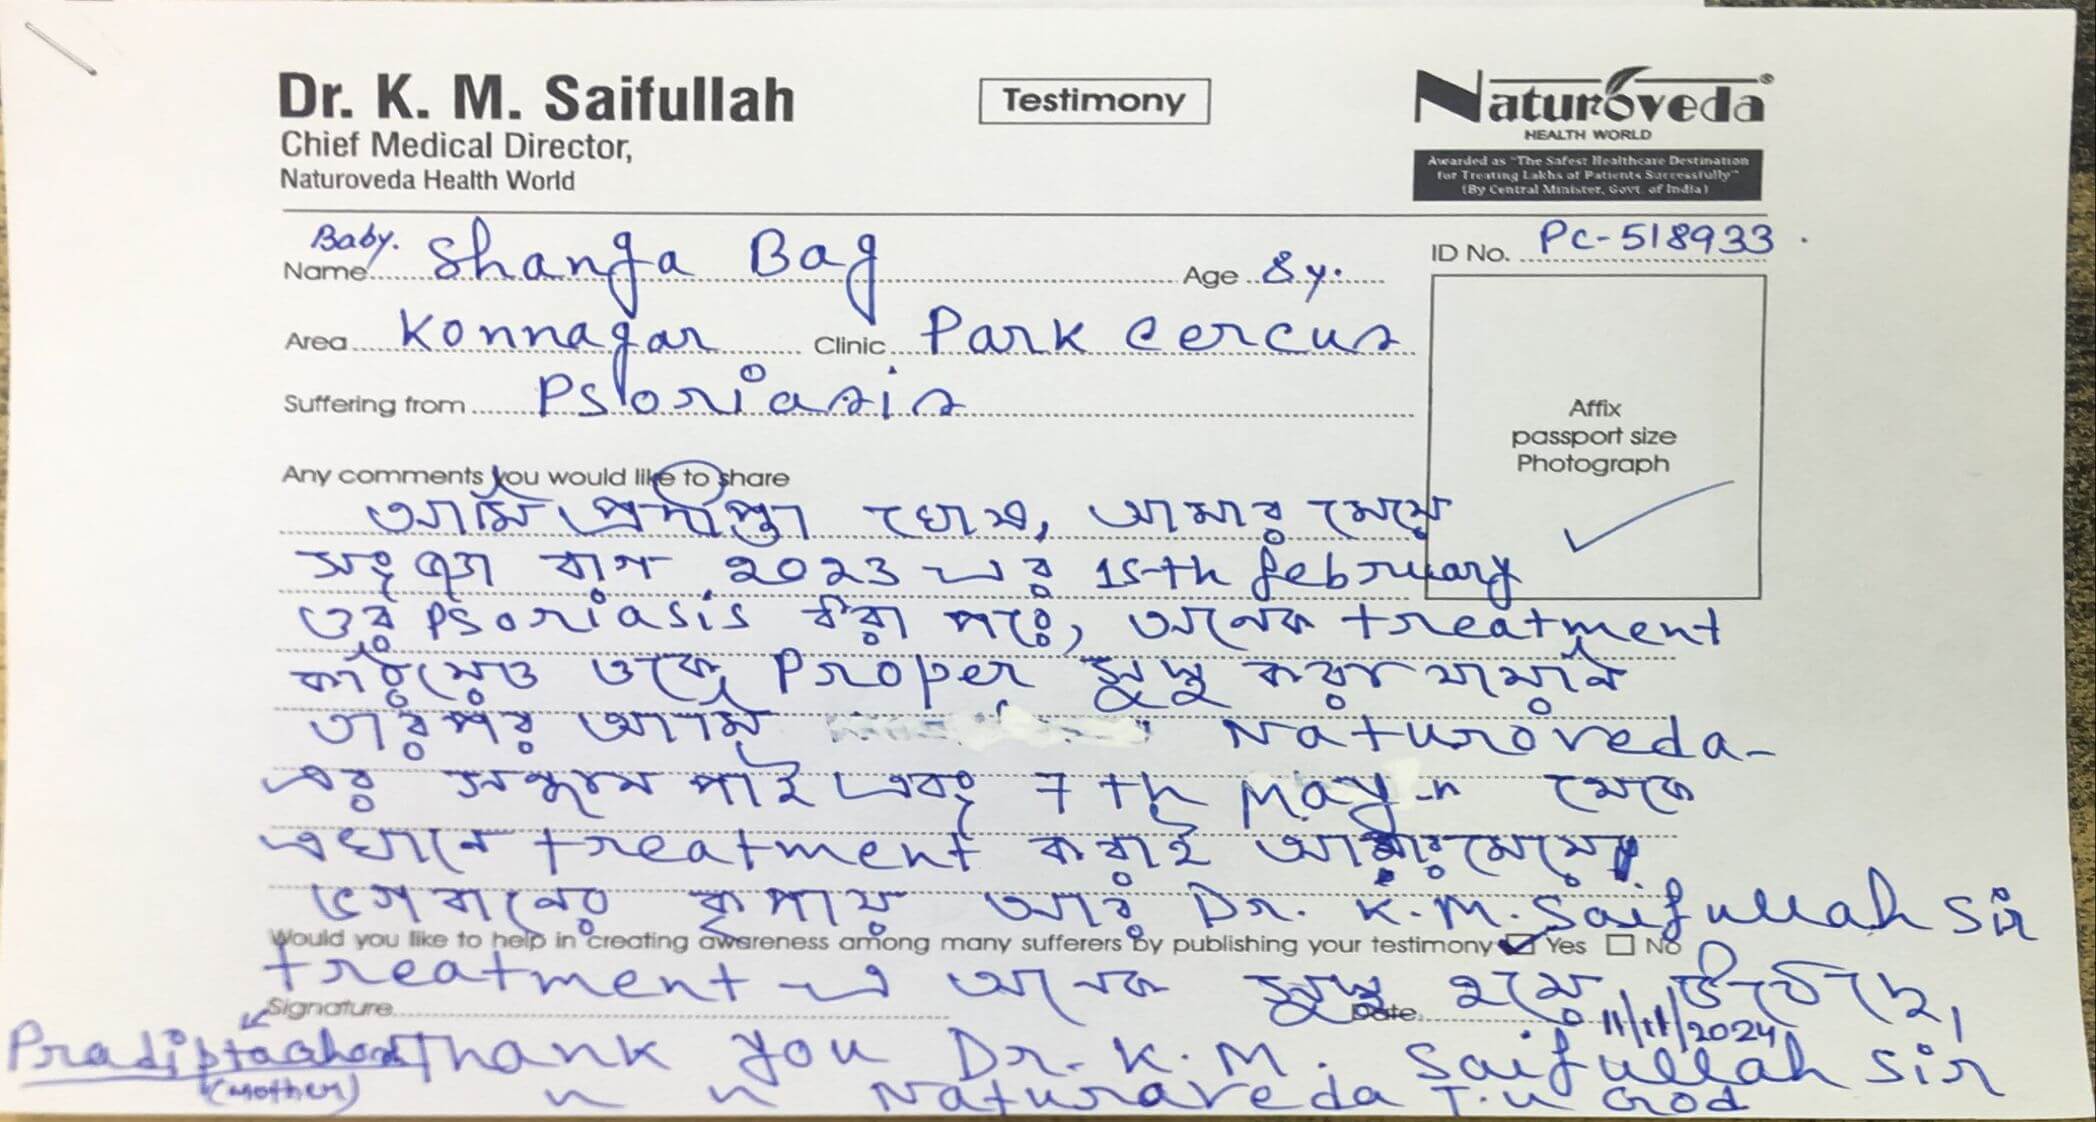 Dr. K. M. Saifullah
Chief Medical Director,
Naturoveda Health World
Testimony
Naturoveda®
HEALTH WORLD
Awarded as "The Safest Healthcare Destination
for Treating Lakhs of Patients Successfully"
(By Central Minister, Govt. of India)
Baby.
Name Shanja Bag Age 8y.
ID No. PC-518933
Area Konnagar Clinic Park Cercus
Suffering from Psoriasis
Affix
passport size
Photograph
Any comments you would like to share
আমি প্রদীপ্তা ঘোষ, আমার মেয়ে
সংজ্ঞা বাগ 2023 এর 15th february
ওর psoriasis ধরা পরে, অনেক treatment
করিয়েও ওকে Proper সুস্থ করা যায়নি
তারপর আমি Naturoveda-
এর সন্ধান পাই এবং 7th May থেকে
এখানে treatment করাই আমার মেয়ের
ভগবানের কৃপায় আর Dr. K.M. Saifullah Sir
Would you like to help in creating awareness among many sufferers by publishing your testimony Yes No
treatment-এ অনেক সুস্থ হয়ে উঠেছে,
Signature Date 11/11/2024
Pradipta Ghosh Thank you Dr. K.M. Saifullah Sir
(Mother) " " Naturaveda T.u God